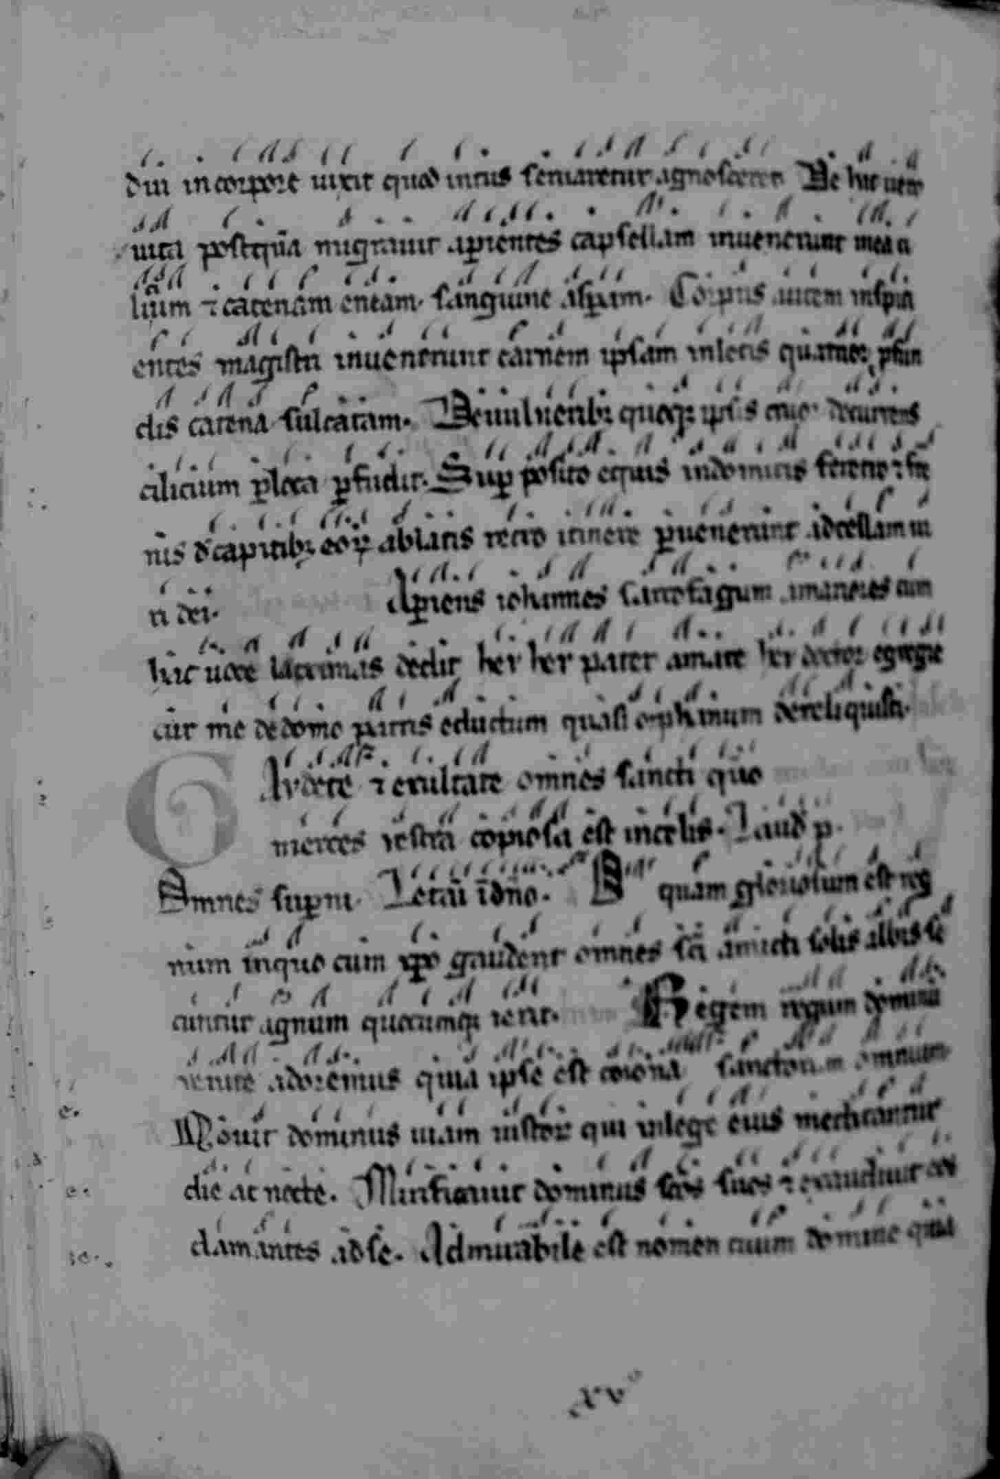 diu in corpore uixit quod intus seruaretur agnosceret De hac uero
uita postq̃a migrauit aꝑientes capsellam inuenerunt
ium ⁊ catenam eneam. sanguine asp̃sam. Corpus autem inspici
entes magistri inuenerunt carnem ipsam
dis catena sulcatam. De uulneribꝫ quoqꝫ ipsis decurrens
cilicium ꝑ loca ꝑfudit. Suꝑ posito equis indomitis feretro ⁊
nis capitibꝫ eoꝝ ablatis recto itinere ꝑuenerunt ad cellam ui
ri dei.
Aꝑiens iohannes sarcofagum
huic uoce lacrimas dedit her her pater amate her doctor egregie
cur me de domo patris eductum quasi orphanum dereliquisti.
Gaudete ⁊ exultate omnes sancti qm̃
merces uestra copiosa est in celis. Laud p.
Omnes suꝑni. Letam̃ i dno. O quam gloriosum est reg
num in quo cum xp̃o gaudent omnes sc̃i amicti stolis albis se
cuntur agnum quocumqꝫ ierit. Regem regum dominũ
uenite adoremus quia ipse est corona sanctorum omnium
Nouit dominus uiam iustoꝝ qui in lege eius meditantur
die ac nocte. Mirificauit dominus sc̃os suos ⁊ exaudiuit eos
clamantes ad se. Admirabile est nomen tuum domine quia
xv